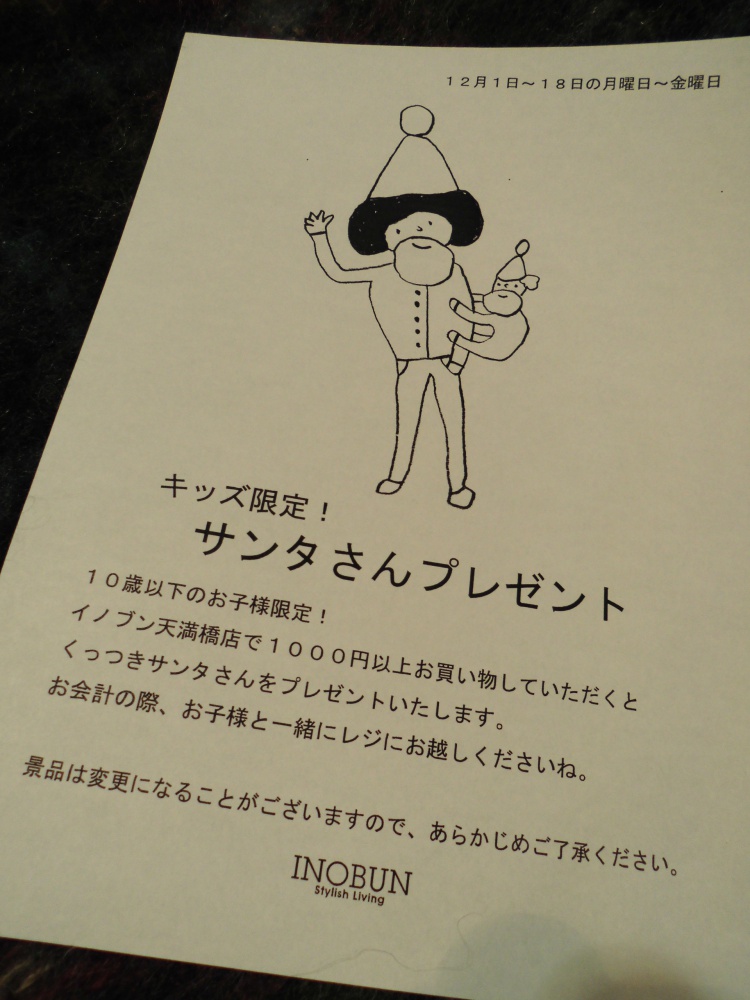 １２月１日～１８日の月曜日～金曜日
キッズ限定！
サンタさんプレゼント
１０歳以下のお子様限定！
イノブン天満橋店で１０００円以上お買い物していただくと
くっつきサンタさんをプレゼントいたします。
お会計の際、お子様と一緒にレジにお越しくださいね。
景品は変更になることがございますので、あらかじめご了承ください。
INOBUN
Stylish Living